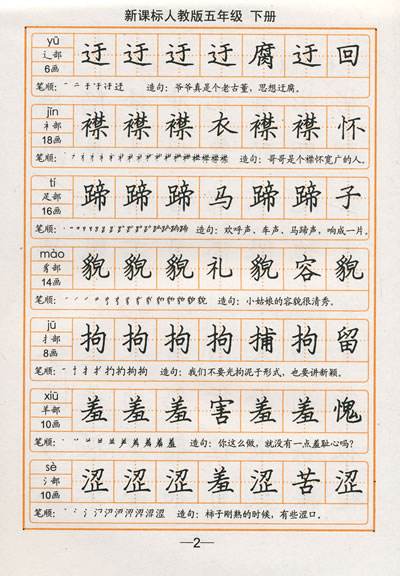 新课标人教版五年级 下册
yū 迂 迂 迂 腐 迂 回
辶部
6画
笔顺: 造句:爷爷真是个老古董,思想迂腐。
jīn 襟 襟 襟 衣 襟 怀
衤部
18画
笔顺: 造句:哥哥是个襟怀宽广的人。
tí 蹄 蹄 蹄 马 蹄 蹄 子
足部
16画
笔顺: 造句:欢呼声、车声、马蹄声,响成一片。
mào 貌 貌 貌 礼 貌 容 貌
豸部
14画
笔顺: 造句:小姑娘的容貌很清秀。
jū 拘 拘 拘 拘 捕 拘 留
扌部
8画
笔顺: 造句:我们不要光拘泥于形式,也要讲新颖。
xiū 羞 羞 羞 害 羞 羞 愧
羊部
10画
笔顺: 造句:你这么做,就没有一点羞耻心吗?
sè 涩 涩 涩 羞 涩 苦 涩
氵部
10画
笔顺: 造句:柿子刚熟的时候,有些涩口。
2